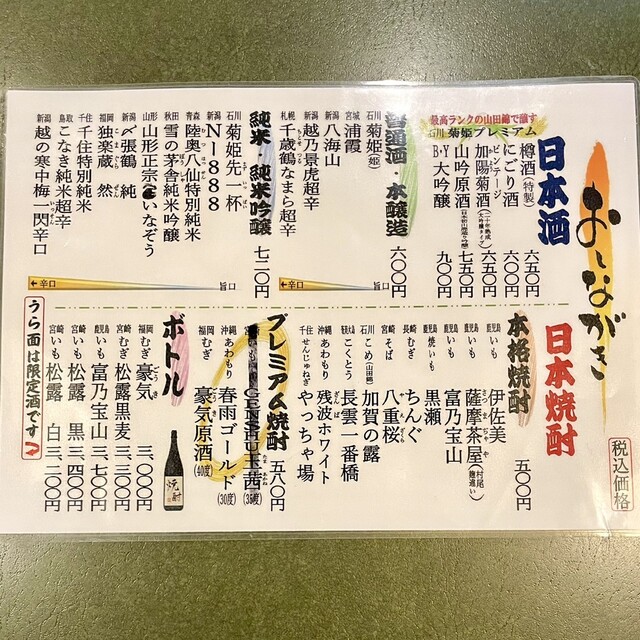 おしながき
税込価格
日本酒
最高ランクの山田錦で醸す
石川 菊姫プレミアム
樽酒(特製) 六五〇円
にごり酒 六〇〇円
加陽菊酒 六五〇円
山吟原酒 七五〇円
B・Y大吟醸 九〇〇円
普通酒・本醸造 六〇〇円
石川 菊姫(姫)
宮城 浦霞
新潟 八海山
新潟 越乃景虎超辛
札幌 千歳鶴なまら超辛
←辛口 旨口
純米・純米吟醸 七二〇円
石川 菊姫先一杯
新潟 N-888
青森 陸奥八仙特別純米
秋田 雪の茅舎純米吟醸
山形 山形正宗いなぞう
新潟 〆張鶴 純
福岡 独楽蔵 然
千住 千住特別純米
鳥取 こなき純米超辛
新潟 越の寒中梅一閃辛口
←辛口 旨口
日本焼酎
本格焼酎 五〇〇円
鹿児島 いも 伊佐美
鹿児島 いも 薩摩茶屋(村尾麹違い)
鹿児島 いも 富乃宝山
鹿児島 焼いも 黒瀬
長崎 むぎ ちんぐ
宮崎 そば 八重桜
石川 こめ(山田錦) 加賀の露
こくとう 長雲一番橋
沖縄 あわもり 残波ホワイト
千住 せんじゅねぎ やっちゃ場
プレミアム焼酎 五八〇円
宮崎 いも GENSHU玉茜(35度)
沖縄 あわもり 春雨ゴールド(30度)
福岡 むぎ 豪気原酒(40度)
ボトル
焼酎
福岡 むぎ 豪気 三、〇〇〇円
宮崎 むぎ 松露黒麦 三、三〇〇円
鹿児島 いも 富乃宝山 三、七〇〇円
宮崎 いも 松露 黒 三、四〇〇円
宮崎 いも 松露 白 三、二〇〇円
うら面は限定酒です